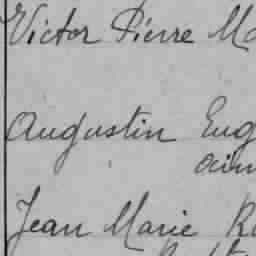 Victor Pierre Ma
Augustin Eug
Jean Marie R